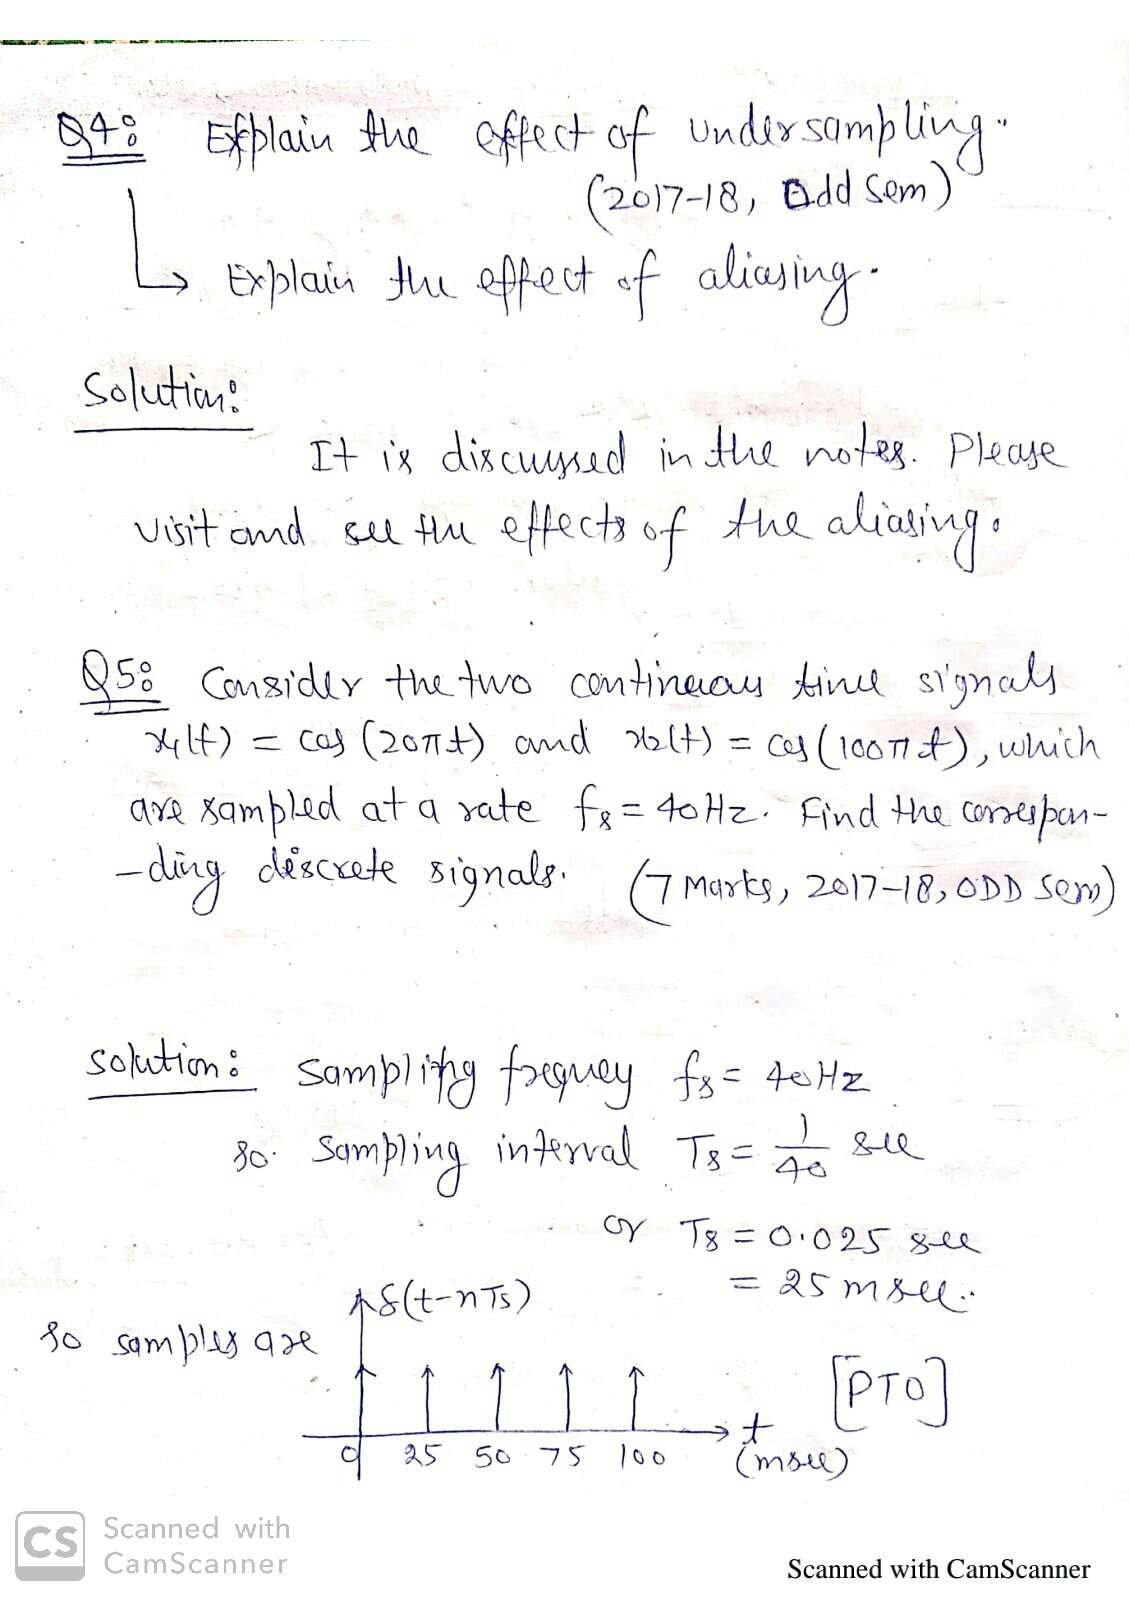 Q4: Explain the effect of undersampling.
(2017-18, Odd Sem)
Explain the effect of aliasing.
Solution:
It is discussed in the notes. Please
visit and see the effects of the aliasing.
Q5: Consider the two continuous time signals
x1(t) = cos (20πt) and x2(t) = cos (100πt), which
are sampled at a rate fs = 40Hz. Find the correspon-
-ding discrete signals. (7 Marks, 2017-18, ODD Sem)
Solution: Sampling frequey fs = 40Hz
so. Sampling interval Ts = 1/40 sec
or Ts = 0.025 sec
= 25 msec.
δ(t-nTs)
So samples are
[PTO]
t
0 25 50 75 100 (msec)
CS Scanned with
CamScanner
Scanned with CamScanner